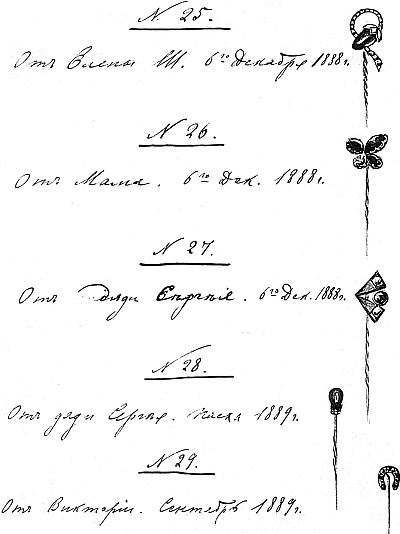 N. 25.
Отъ Елены Ш. 6го Декабря 1888г.
N 26.
Отъ Мама. 6го Дек. 1888г.
N 27.
Отъ дяди Сергѣя. 6го Дек. 1888г.
N 28.
Отъ дяди Сергѣя. Пасха 1889г.
N 29.
Отъ Викторіи. Сентябрь 1889г.